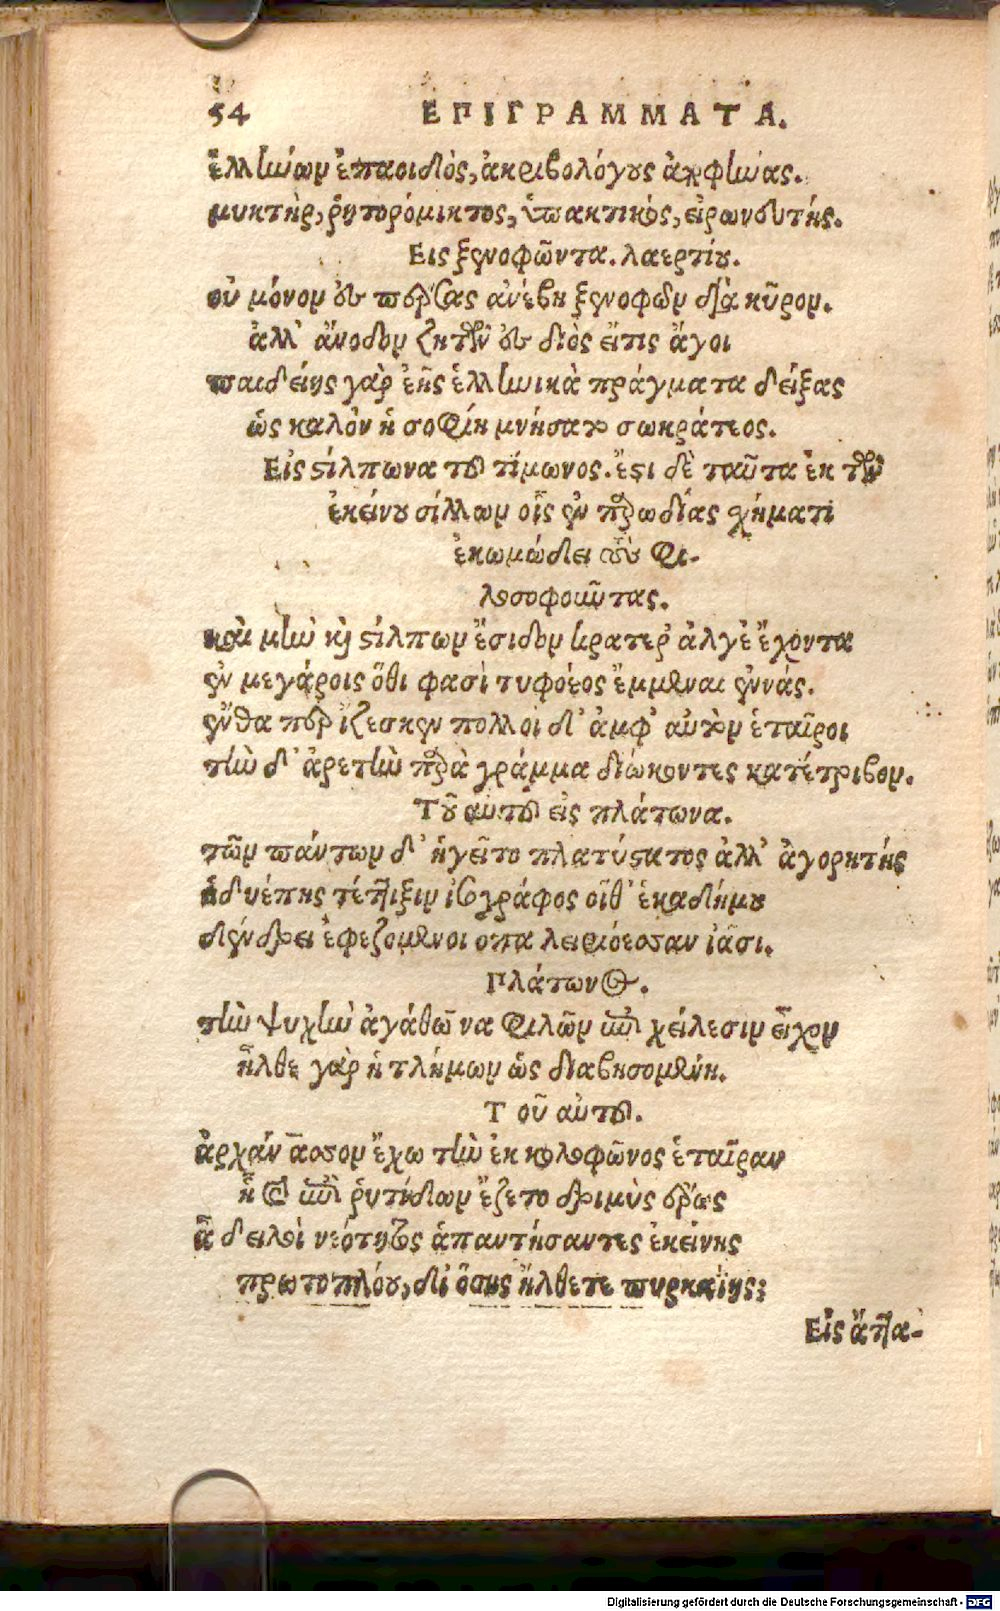 54 ΕΠΙΓΡΑΜΜΑΤΑ.
ἑλλήνων ἐπαοιδὸς, ἀκριβολόγους ἀποφήνας.
μυκτὴρ, ῥητορόμικτος, ὑπακτικὸς, εἰρωνευτής.
Εις ξενοφῶντα. λαερτίου.
οὐ μόνον ἐς πέρσας ἀνέβη ξενοφῶν διὰ κῦρον.
ἀλλ' ἄνοδον ζητῶν ἐς διὸς εἴτις ἄγοι
παιδείης γὰρ ἑῆς ἑλληνικὰ πράγματα δείξας
ὡς καλὸν ἡ σοφίη μνήσατο σωκράτεος.
Εἰς στίλπωνα τοῦ τίμωνος. ἔστι δὲ ταῦτα ἐκ τῶν
ἐκείνου σίλλων οἷς ἐν παρωδίας σχήματι
ἐκωμώδει τοὺς φι-
λοσοφοῦντας.
καὶ μὴν καὶ στίλπων ἔσιδον κρατέρ' ἀλγἐ ἔχοντα
ἐν μεγάροις ὅθι φασὶ τυφόεος ἔμμεναι εὐνάς.
ἔνθα περ ἵζεσκεν πολλοὶ δ' ἀμφ' αὐτὸν ἑταῖροι
τὴν δ' ἀρετὴν παρὰ γράμμα διώκοντες κατέτριβον.
Τοῦ αὐτοῦ εἰς πλάτωνα.
τῶν πάντων δ' ἡγεῖτο πλατύστατος ἀλλ' ἀγορητής
ἡδυέπης τέττιξιν ἰσογράφος οἵθ' ἑκαδήμου
δένδρει ἐφεζόμενοι οπα λειριόεσσαν ἱᾶσι.
Πλάτωνος.
τὴν ψυχὴν ἀγάθωνα φιλῶν ἐπὶ χείλεσιν εἶχον
ἦλθε γὰρ ἡ τλήμων ὡς διαβησομένη.
Τοῦ αὐτοῦ.
ἀρχεάνασσον ἔχω τὴν ἐκ κολοφῶνος ἑταῖραν
ἧς καὶ ἐπὶ ῥυτίδων ἕζετο δριμὺς ἔρως
ἆ δειλοὶ νεότητος ἀπαντήσαντες ἐκείνης
πρωτοπλόου, δι' ὅσης ἤλθετε πυρκαϊῆς;
Εἰς ἄππα-
Digitalisierung gefördert durch die Deutsche Forschungsgemeinschaft - DFG